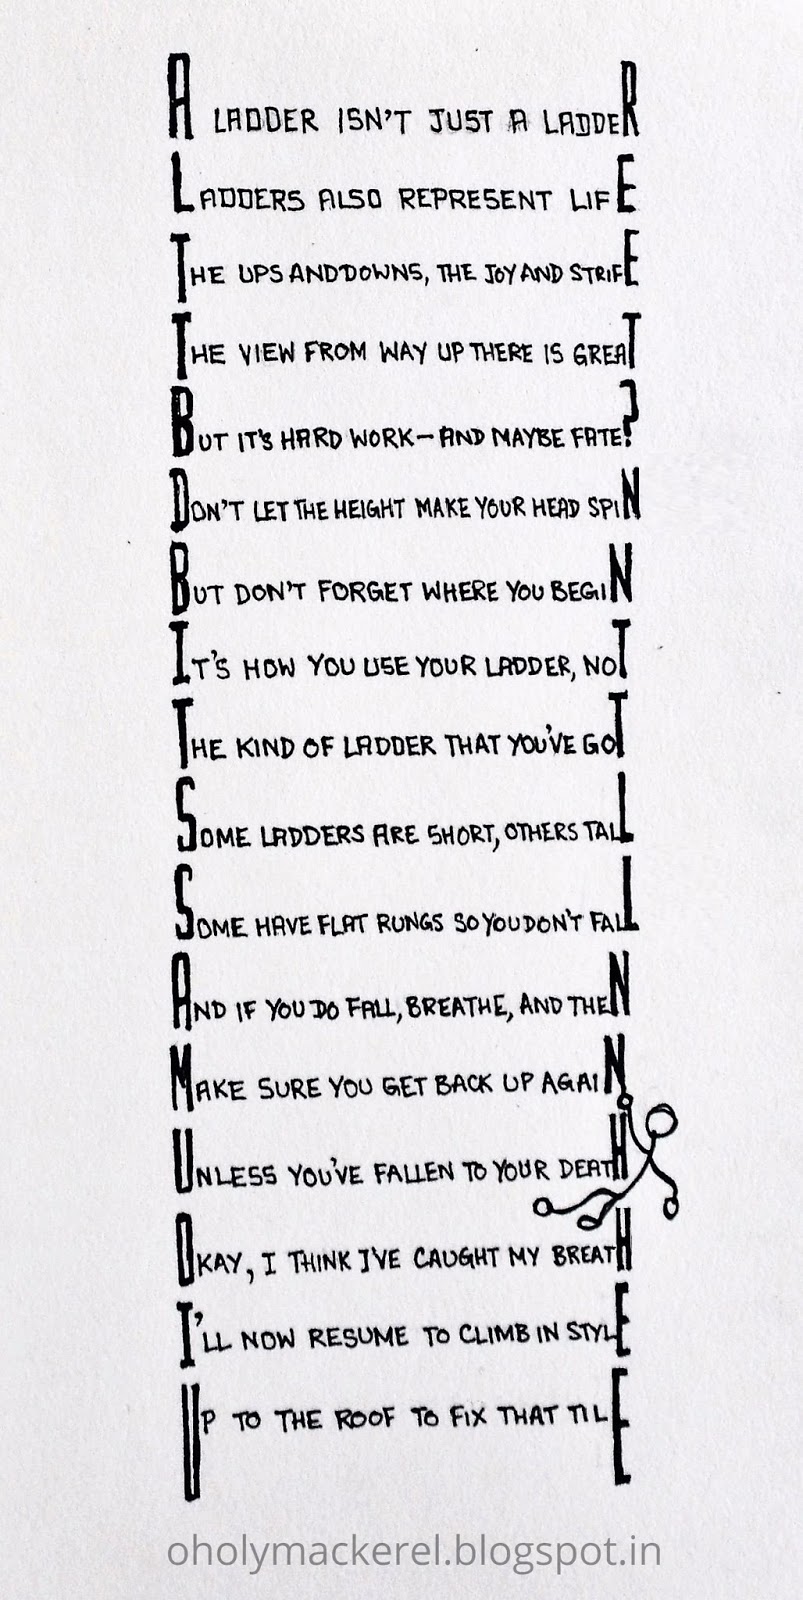 A LADDER ISN'T JUST A LADDER
LADDERS ALSO REPRESENT LIFE
THE UPS AND DOWNS, THE JOY AND STRIFE
THE VIEW FROM WAY UP THERE IS GREAT
BUT IT'S HARD WORK – AND MAYBE FATE?
DON'T LET THE HEIGHT MAKE YOUR HEAD SPIN
BUT DON'T FORGET WHERE YOU BEGIN
IT'S HOW YOU USE YOUR LADDER, NOT
THE KIND OF LADDER THAT YOU'VE GOT
SOME LADDERS ARE SHORT, OTHERS TALL
SOME HAVE FLAT RUNGS SO YOU DON'T FALL
AND IF YOU DO FALL, BREATHE, AND THEN
MAKE SURE YOU GET BACK UP AGAIN
UNLESS YOU'VE FALLEN TO YOUR DEATH
OKAY, I THINK I'VE CAUGHT MY BREATH
I'LL NOW RESUME TO CLIMB IN STYLE
UP TO THE ROOF TO FIX THAT TILE
oholymackerel.blogspot.in